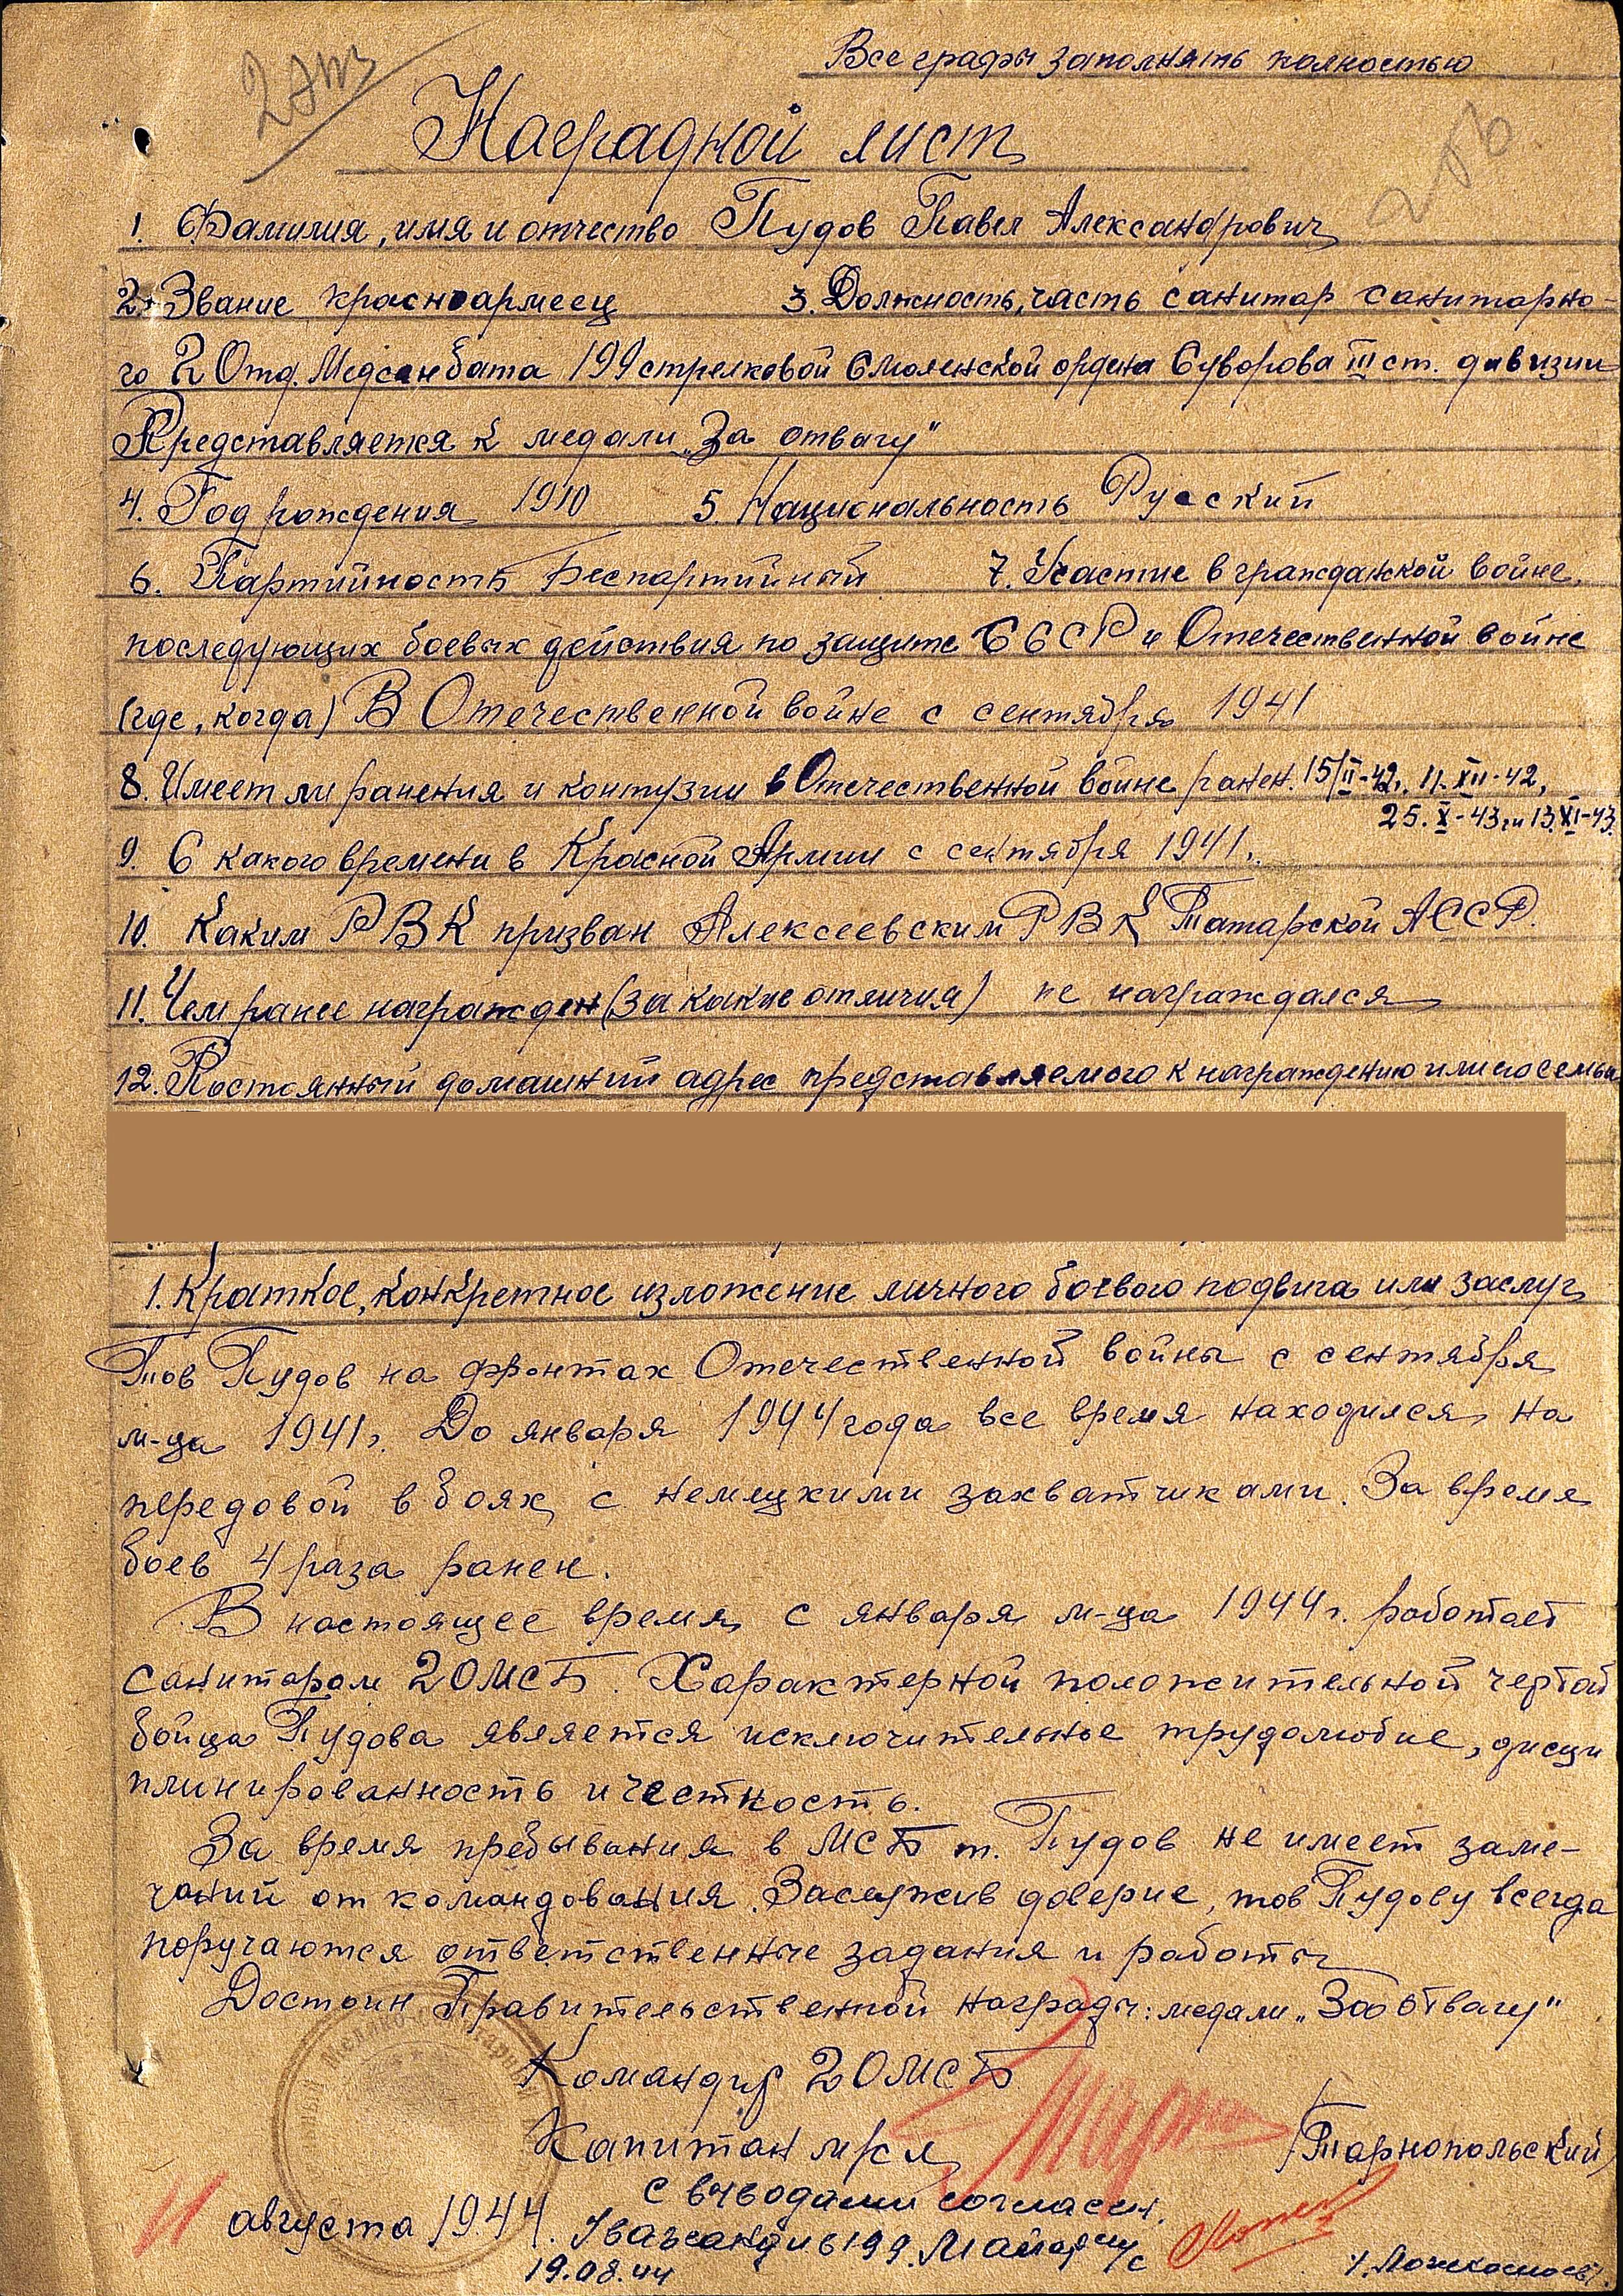 Все графы заполнять полностью
Наградной лист
1. Фамилия, имя и отчество Пудов Павел Александрович
2. Звание красноармеец 3. Должность, часть санитар санитарно-
го 2 Отд. Медсанбата 199 стрелковой Смоленской ордена Суворова III ст. дивизии
Представляется к медали „За отвагу"
4. Год рождения 1910 5. Национальность Русский
6. Партийность Беспартийный 7. Участие в гражданской войне,
последующих боевых действия по защите СССР и Отечественной войне
(где, когда) В Отечественной войне с сентября 1941
8. Имеет ли ранения и контузии в Отечественной войне ранен. 15/II-42г. 11.XII-42,
25.X-43г и 13.XI-43.
9. С какого времени в Красной Армии с сентября 1941г.
10. Каким РВК призван Алексеевским РВК Татарской АССР.
11. Чем ранее награжден (за какие отличия) не награждался
12. Постоянный домашний адрес представляемого к награждению или его семьи
1. Краткое, конкретное изложение личного боевого подвига или заслуг
Тов Пудов на фронтах Отечественной войны с сентября
м-ца 1941г. До января 1944 года все время находился на
передовой в боях с немецкими захватчиками. За время
боев 4 раза ранен.
В настоящее время с января м-ца 1944г. работает
санитаром 2 ОМСБ. Характерной положительной чертой
бойца Пудова является исключительное трудолюбие, дисци
плинированность и честность.
За время пребывания в МСБ т. Пудов не имеет заме-
чаний от командования. Заслужив доверие, тов Пудову всегда
поручаются ответственные задания и работы
Достоин Правительственной награды: медали „За отвагу"
Командир 2 ОМСБ
Капитан м/сл /Тарнопольский/
11 августа 1944.
с выводами согласен.
199. Майор м/с
19.08.44